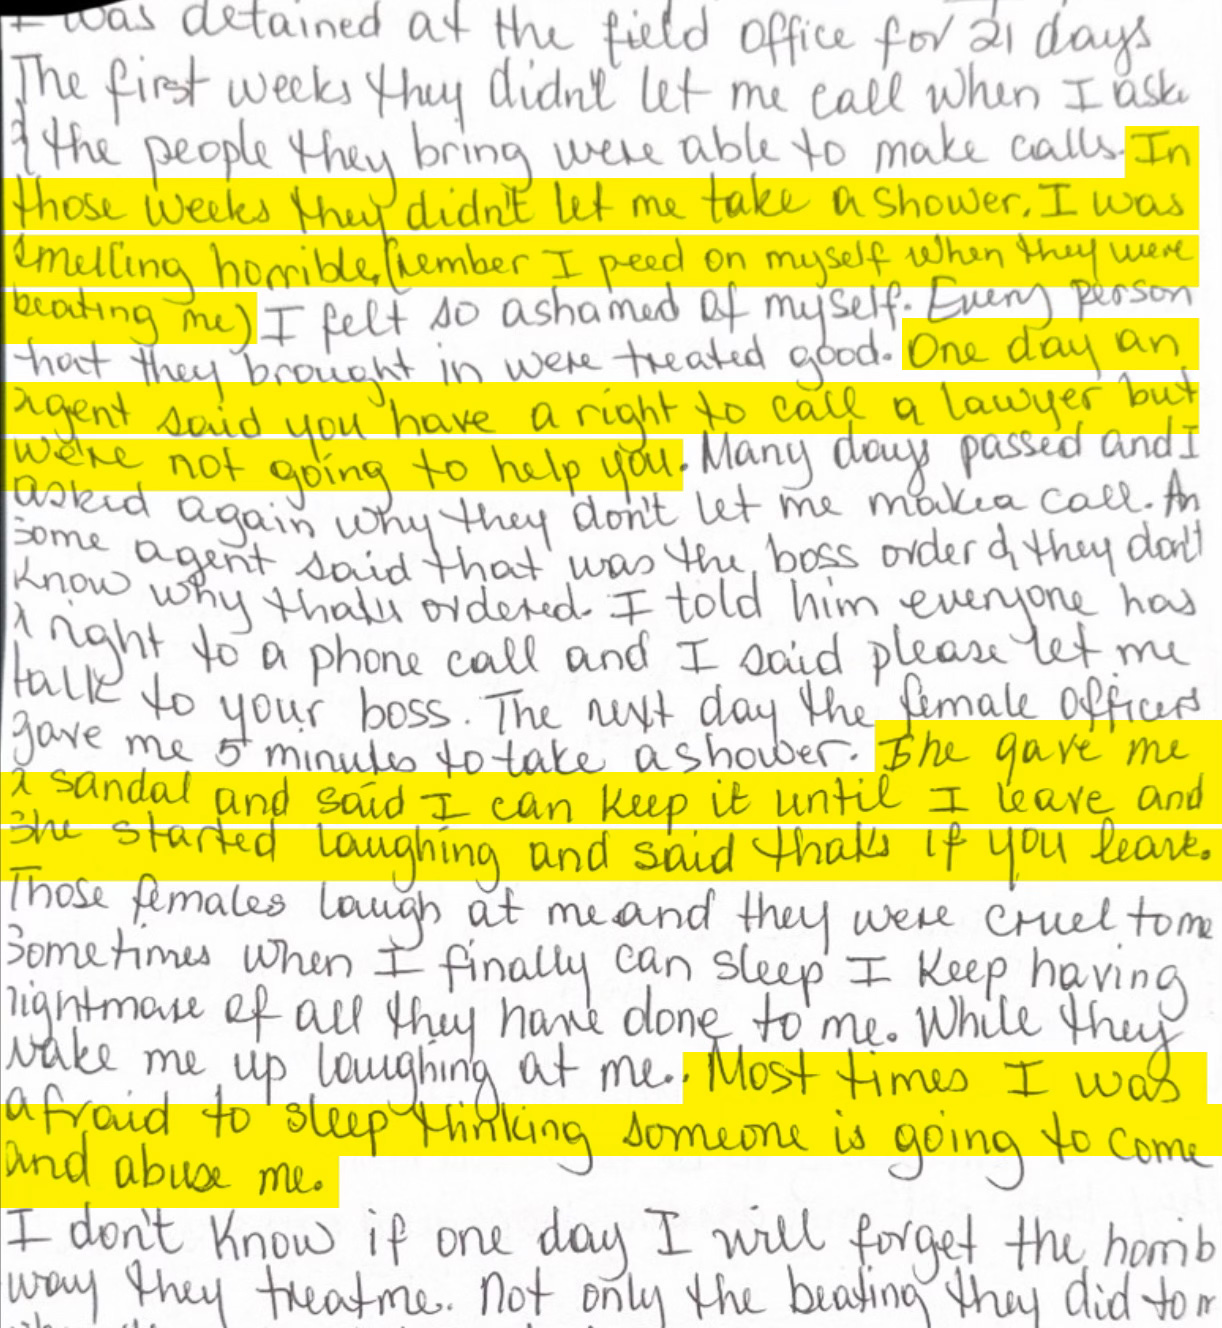 I was detained at the field office for 21 days
The first weeks they didn't let me call when I aske
& the people they bring were able to make calls. In
those weeks they didn't let me take a shower. I was
smelling horrible. (rember I peed on myself when they were
beating me) I felt so ashamed of myself. Every person
that they brought in were treated good. One day an
agent said you have a right to call a lawyer but
we're not going to help you. Many days passed and I
asked again why they don't let me make a call. An
some agent said that was the boss order & they don't
know why thats ordered. I told him everyone has
a right to a phone call and I said please let me
talk to your boss. The next day the female officers
gave me 5 minutes to take a shower. She gave me
a sandal and said I can keep it until I leave and
she started laughing and said thats if you leave.
Those females laugh at me and they were cruel to me
Sometimes when I finally can sleep I keep having
nightmare of all they have done to me. While they
wake me up laughing at me. Most times I was
afraid to sleep thinking someone is going to come
and abuse me.
I don't know if one day I will forget the horrib
way they treat me. Not only the beating they did to m